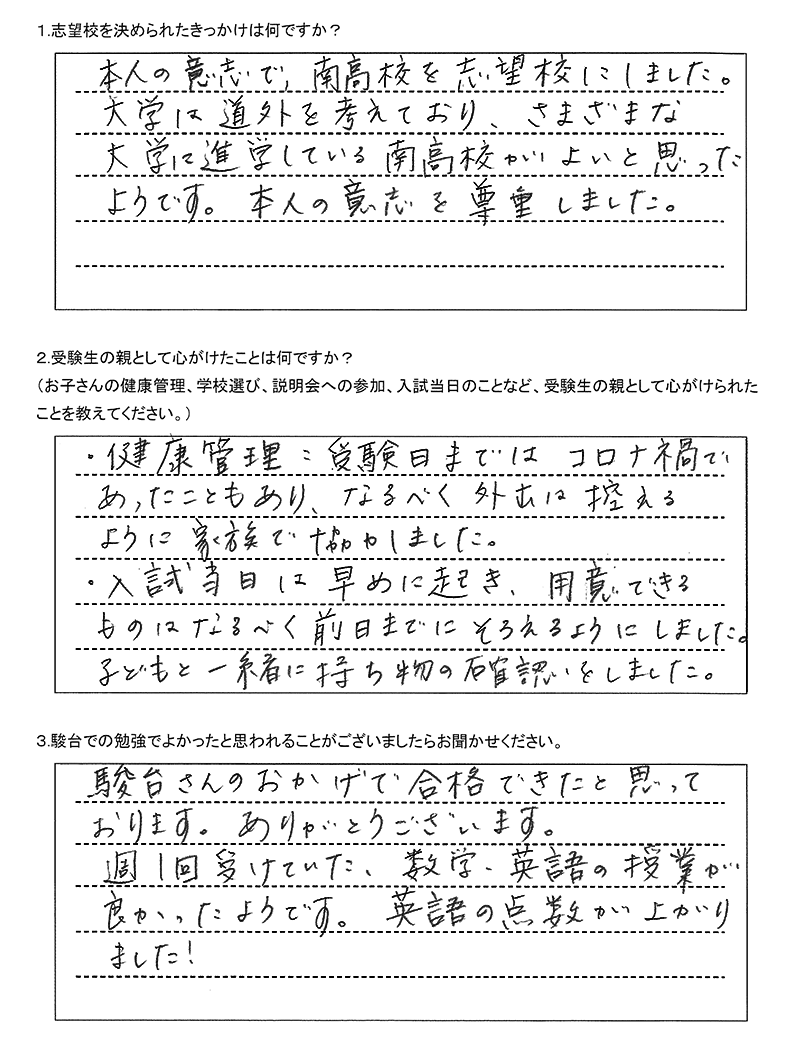 1.志望校を決められたきっかけは何ですか？
本人の意志で、南高校を志望校にしました。
大学は道外を考えており、さまざまな
大学に進学している南高校がよいと思った
ようです。本人の意志を尊重しました。
2.受験生の親として心がけたことは何ですか？
（お子さんの健康管理、学校選び、説明会への参加、入試当日のことなど、受験生の親として心がけられた
ことを教えてください。）
・健康管理：受験日まではコロナ禍で
あったこともあり、なるべく外出は控える
ように家族で協力しました。
・入試当日は早めに起き、用意できる
ものはなるべく前日までにそろえるようにしました。
子どもと一緒に持ち物の確認をしました。
3.駿台での勉強でよかったと思われることがございましたらお聞かせください。
駿台さんのおかげで合格できたと思って
おります。ありがとうございます。
週1回受けていた、数学、英語の授業が
良かったようです。英語の点数が上がり
ました！